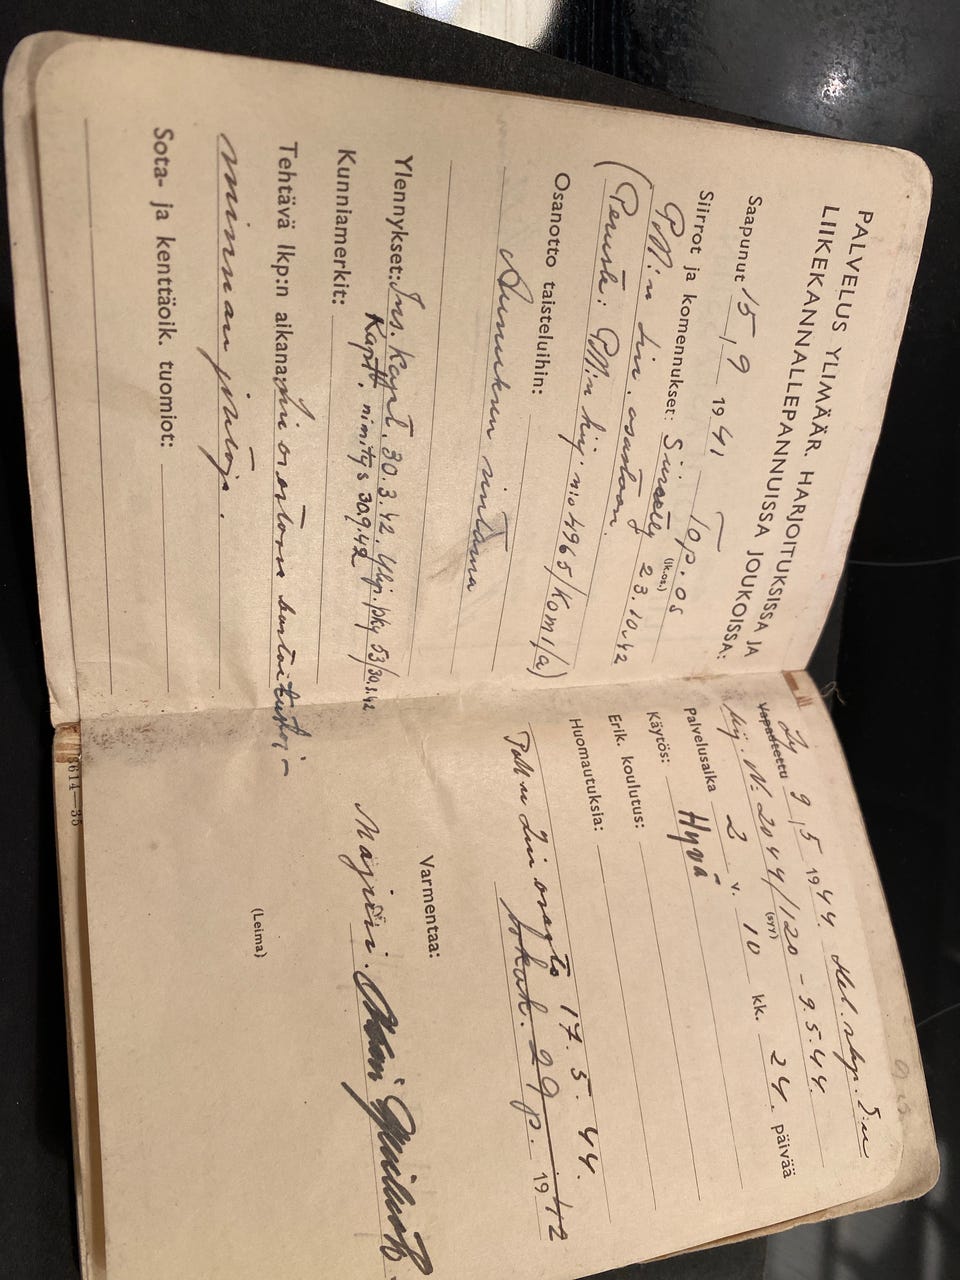 PALVELUS YLIMÄÄR. HARJOITUKSISSA JA
LIIKEKANNALLEPANNUISSA JOUKOISSA:
Saapunut 15/9 1941 Top.os
(lk.os.)
Siirrot ja komennukset: Siirretty 23.10.42
PM:n Lin. osastoon.
(Peruste: PM:n kirj. n:o 4965/Kom 1/a)
Osanotto taisteluihin:
Aunuksen rintama
Ylennykset: Ins. kapt. 30.3.42. Ylip. pky 53/30.3.42
Kapt. nimitys 30.9.42
Kunniamerkit:
Tehtävä lkp:n aikana
Sota- ja kenttäoik. tuomiot:
Vapautettu 9/5 1944. Hel. skp. E:n
kirj. N: 2044/120 - 9.5.44.
(syy)
Palvelusaika 2 v. 10 kk. 24. päivää
Käytös: Hyvä
Erik. koulutus:
Huomautuksia:
PM:n Lin osasto 17. 5. 44.
29 p. 1942
Varmentaa:
Majuri.
(Leima)
3614—35